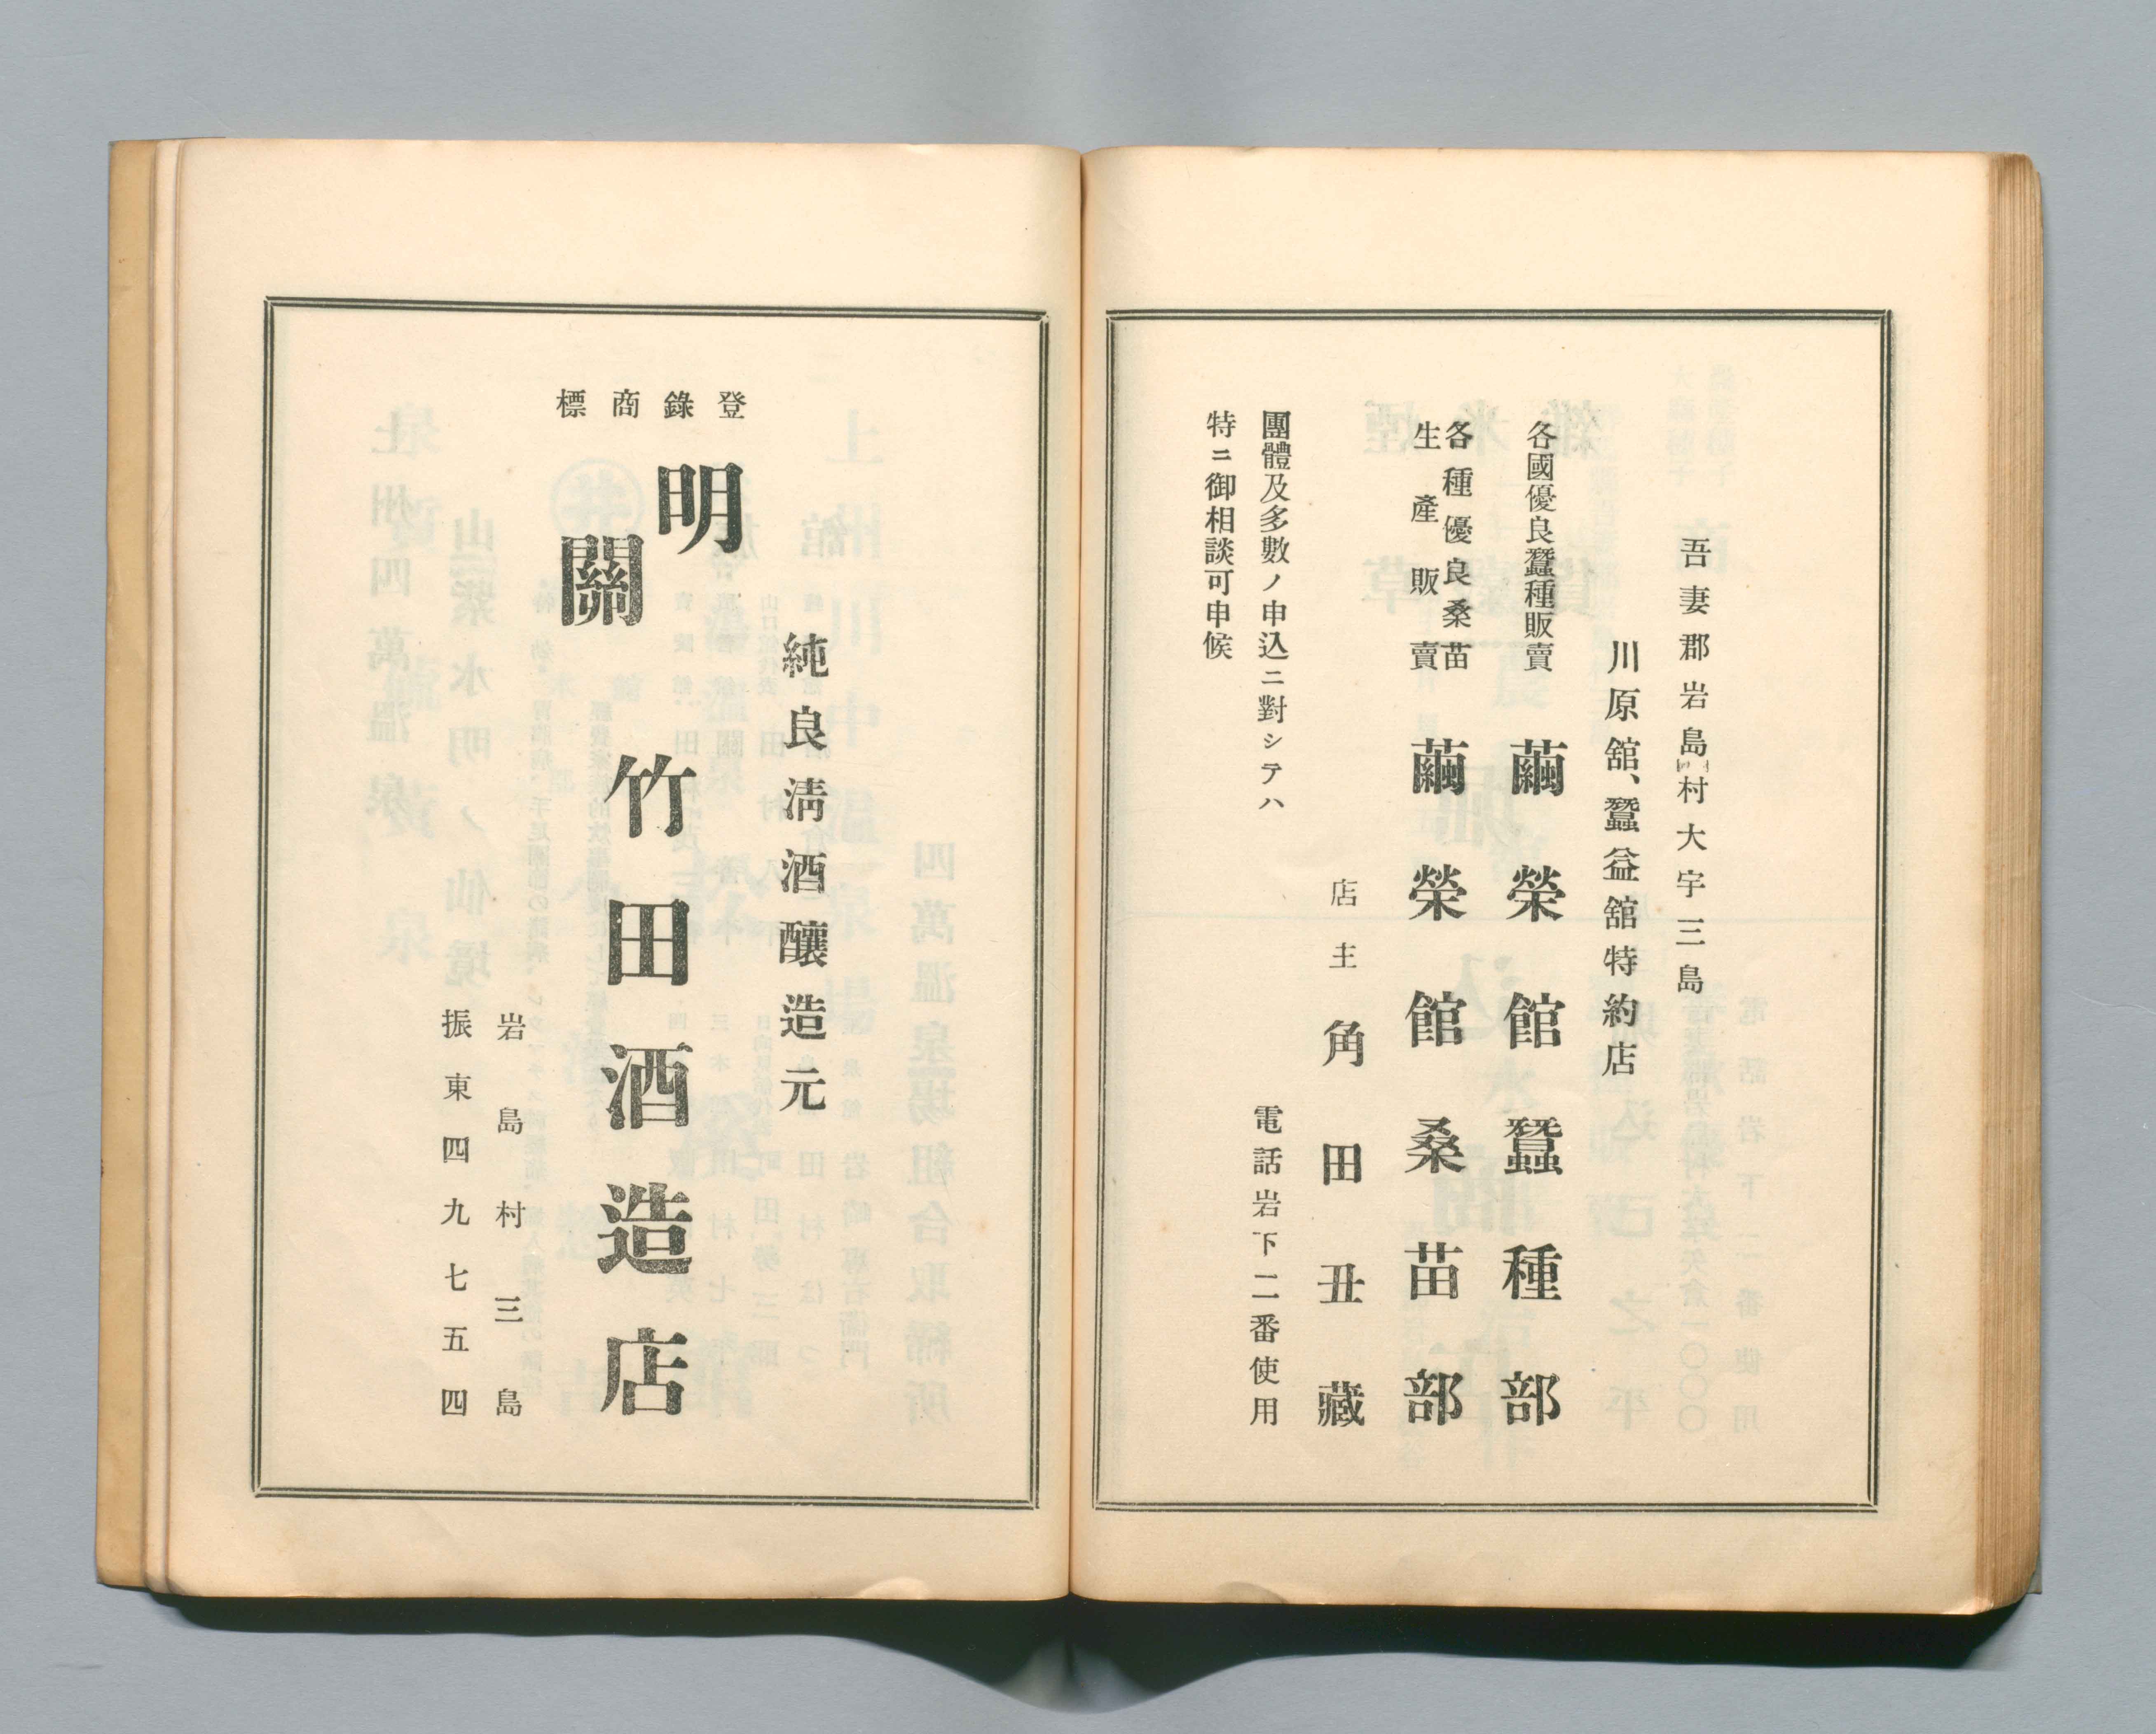 吾妻郡岩島村大字三島
川原舘、蠶益舘特約店
各國優良蠶種販賣 繭榮館蠶種部
各種優良桑苗
生産販賣 繭榮館桑苗部
店主 角田丑藏
電話岩下二番使用
團體及多數ノ申込ニ對シテハ
特ニ御相談可申候
純良淸酒釀造元
登錄商標
明關
竹田酒造店
岩島村三島
振東四九七五四